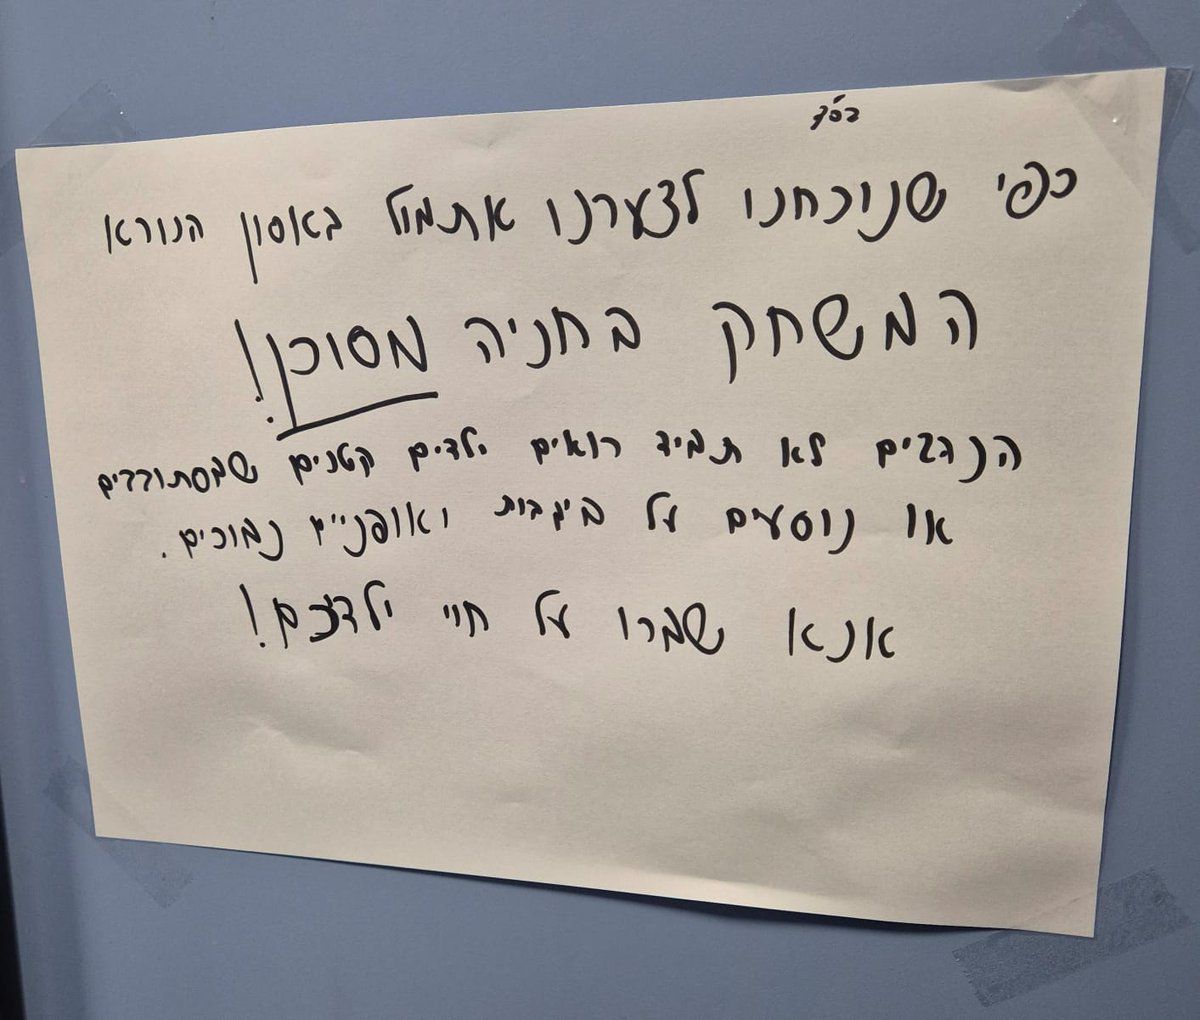 בס"ד
כפי שנוכחנו לצערנו אתמול באסון הנורא
המשחק בחניה מסוכן!
הנהגים לא תמיד רואים ילדים קטנים שמסתודדים
או נוסעים על בימבות ואופניים נמוכים.
אנא שמרו על חיי ילדכם!